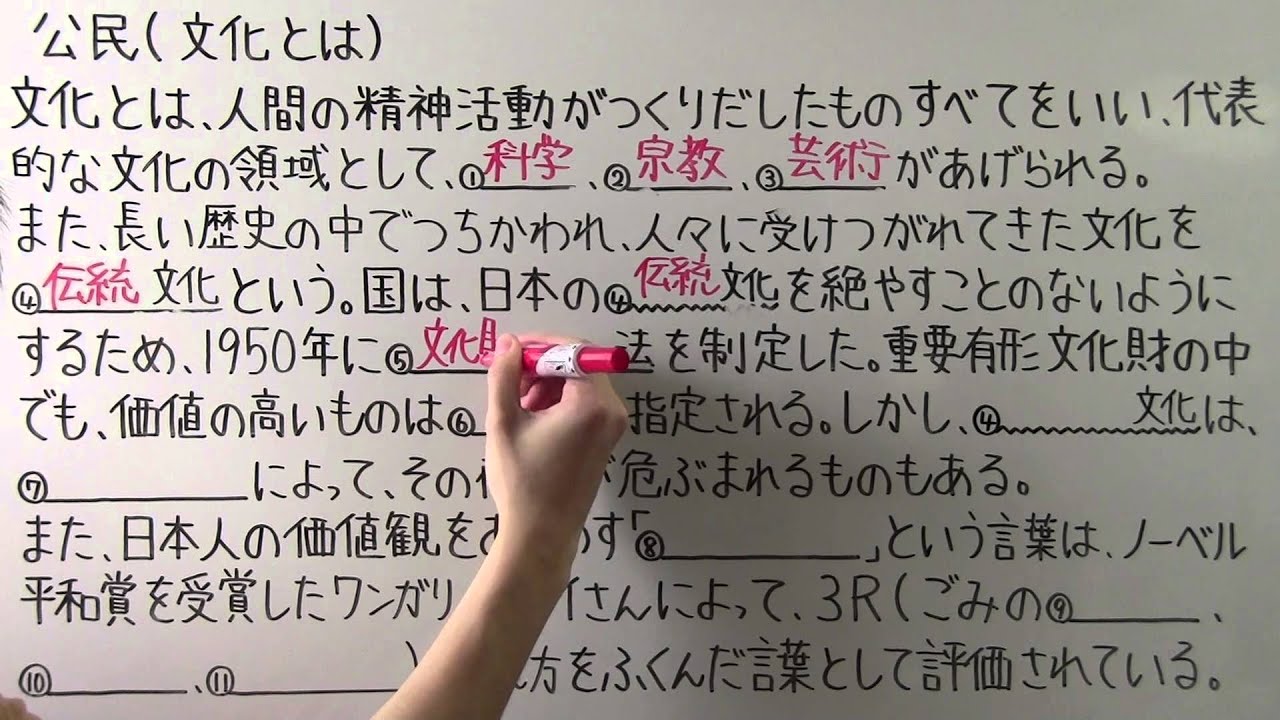 公民(文化とは)
文化とは、人間の精神活動がつくりだしたものすべてをいい、代表
的な文化の領域として、①科学、②宗教、③芸術があげられる。
また、長い歴史の中でつちかわれ、人々に受けつがれてきた文化を
④伝統文化という。国は、日本の④伝統文化を絶やすことのないように
するため、1950年に⑤文化財法を制定した。重要有形文化財の中
でも、価値の高いものは⑥指定される。しかし、④文化は、
⑦によって、その危ぶまれるものもある。
また、日本人の価値観をあす「⑧」という言葉は、ノーベル
平和賞を受賞したワンガリイさんによって、3R(ごみの⑨、
⑩、⑪)方をふくんだ言葉として評価されている。